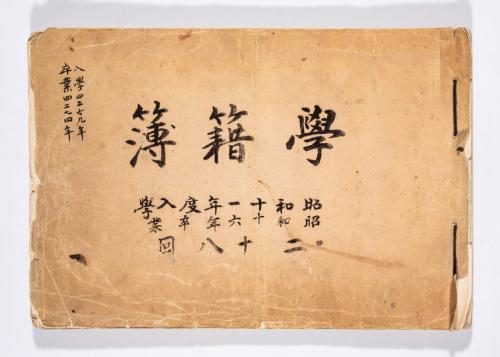 學籍簿
昭和十一年度入學
昭和十六年卒業
二十八回
入學四二六九年
卒業四二七四年